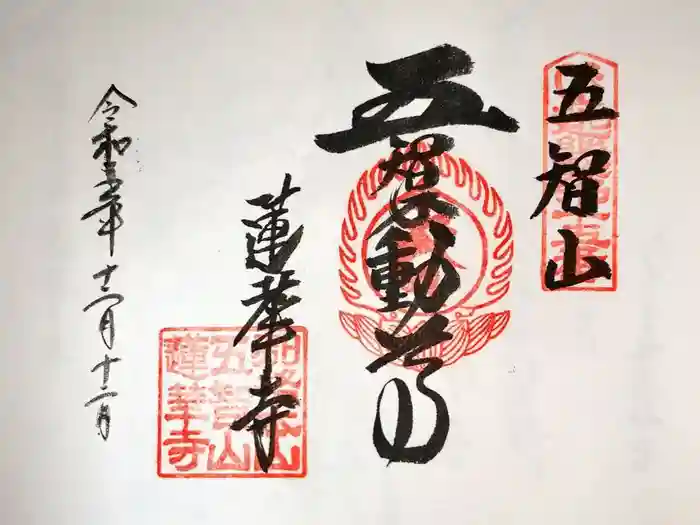 五智山
五智不動尊
蓮華寺
五智山
蓮華寺
令和三年 十二月 十二日